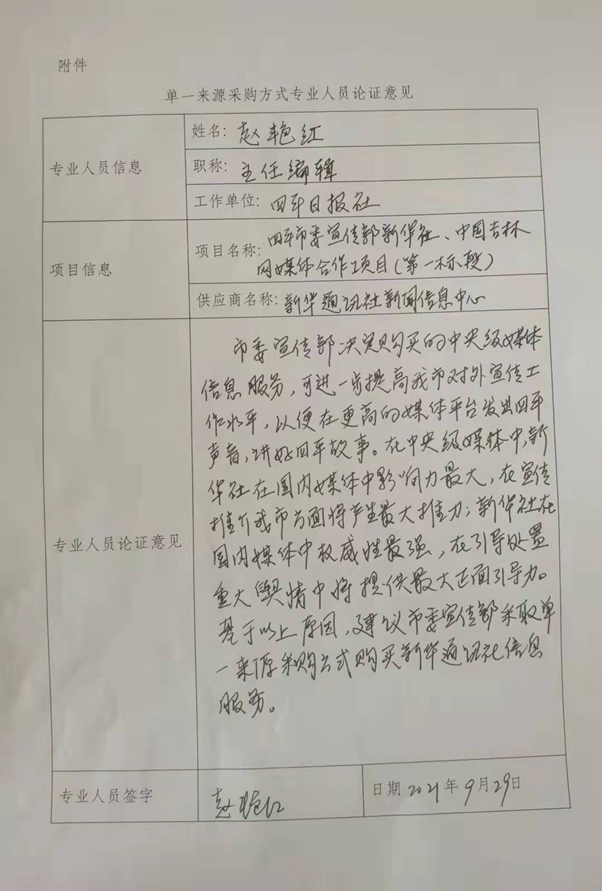 附件
单一来源采购方式专业人员论证意见
专业人员信息
姓名：赵艳红
职称：主任编辑
工作单位：四平日报社
项目信息
项目名称：四平市委宣传部新华社、中国吉林
网媒体合作项目（第一标段）
供应商名称：新华通讯社新闻信息中心
专业人员论证意见
市委宣传部决定购买的中央级媒体
信息服务，可进一步提高我市对外宣传工
作水平，以便在更高的媒体平台发出四平
声音，讲好四平故事。在中央级媒体中，新
华社在国内媒体中影响力最大，在宣传
推介我市方面将产生最大推力；新华社在
国内媒体中权威性最强，在引导处置
重大舆情中将提供最大正面引导力。
基于以上原因，建议市委宣传部采取单
一来源采购方式购买新华通讯社信息
服务。
专业人员签字
赵艳红
日期 2021年9月29日